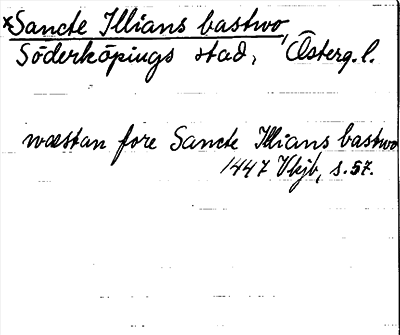 *Sancte Illians bastwo,
Söderköpings stad, Österg.l.
wæstan fore Sancte Illians bastwo
1447 Vkjb, s.57.